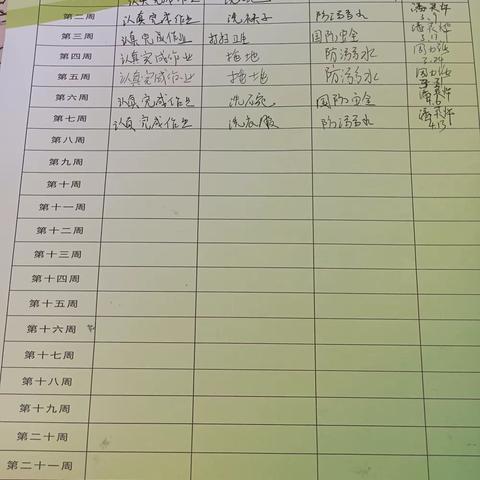 第二周 认真完成作业 洗袜子 防溺水 3.9
第三周 认真完成作业 打扫卫生 国防安全 3.17
第四周 认真完成作业 拖地 防溺水 3.24
第五周 认真完成作业 拖地 防溺水
第六周 认真完成作业 洗碗 国防安全
第七周 认真完成作业 洗衣服 防溺水 4.13
第八周
第九周
第十周
第十一周
第十二周
第十三周
第十四周
第十五周
第十六周
第十七周
第十八周
第十九周
第二十周
第二十一周